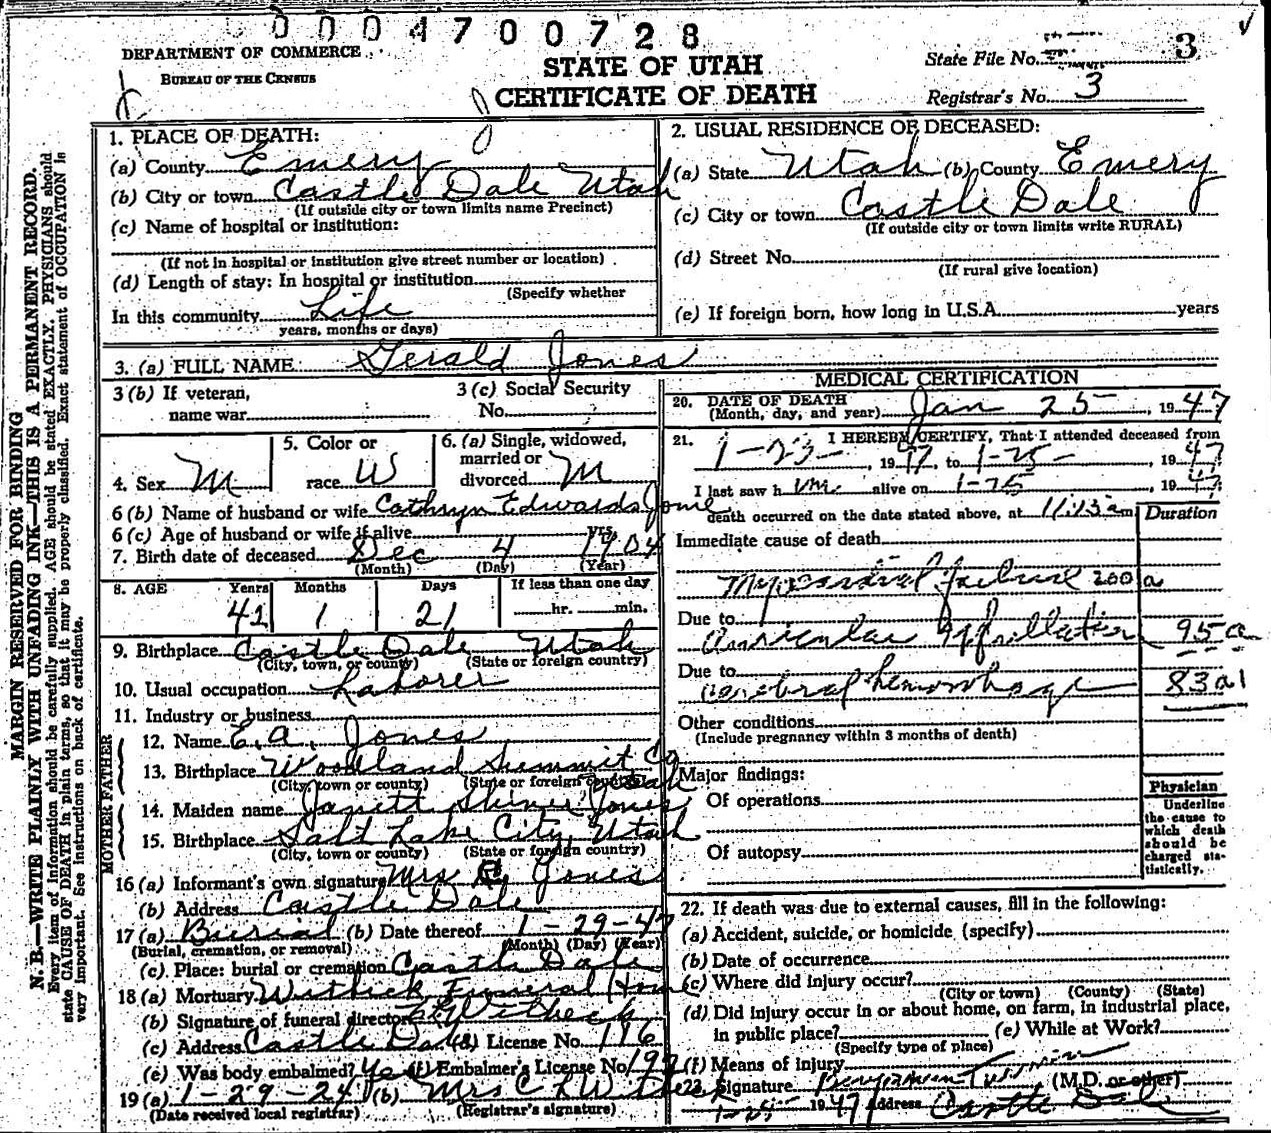 0004700728
DEPARTMENT OF COMMERCE
BUREAU OF THE CENSUS
STATE OF UTAH
CERTIFICATE OF DEATH
State File No. 3
Registrar's No. 3
MARGIN RESERVED FOR BINDING
N. B.—WRITE PLAINLY WITH UNFADING INK—THIS IS A PERMANENT RECORD.
Every item of information should be carefully supplied. AGE should be stated EXACTLY. PHYSICIANS should
state CAUSE OF DEATH in plain terms, so that it may be properly classified. Exact statement of OCCUPATION is
very important. See instructions on back of certificate.
1. PLACE OF DEATH:
(a) County Emery
(b) City or town Castle Dale Utah
(If outside city or town limits name Precinct)
(c) Name of hospital or institution:
(If not in hospital or institution give street number or location)
(d) Length of stay: In hospital or institution
(Specify whether
In this community Life
years, months or days)
2. USUAL RESIDENCE OF DECEASED:
(a) State Utah (b) County Emery
(c) City or town Castle Dale
(If outside city or town limits write RURAL)
(d) Street No.
(If rural give location)
(e) If foreign born, how long in U.S.A. years
3. (a) FULL NAME Gerald Jones
3 (b) If veteran,
name war
3 (c) Social Security
No.
4. Sex M
5. Color or
race W
6. (a) Single, widowed,
married or
divorced M
6 (b) Name of husband or wife Cathryn Edwards Jones
6 (c) Age of husband or wife if alive yrs.
7. Birth date of deceased Dec 4 1904
(Month) (Day) (Year)
8. AGE Years Months Days If less than one day
42 1 21 hr. min.
9. Birthplace Castle Dale Utah
(City, town, or county) (State or foreign country)
10. Usual occupation Laborer
11. Industry or business
MOTHER FATHER
12. Name E. A. Jones
13. Birthplace Woodland Summit Co Utah
(City, town or county) (State or foreign country)
14. Maiden name Janett Shiner Jones
15. Birthplace Salt Lake City, Utah
(City, town or county) (State or foreign country)
16 (a) Informant's own signature Mrs Jones
(b) Address Castle Dale
17 (a) Burial (b) Date thereof 1-29-47
(Burial, cremation, or removal) (Month) (Day) (Year)
(c). Place: burial or cremation Castle Dale
18 (a) Mortuary Funeral Home
(b) Signature of funeral director
(c) Address Castle Dale (d) License No. 116
(e) Was body embalmed? Yes (f) Embalmer's License No.
19 (a) 1-29-24 (b) Mrs C L
(Date received local registrar) (Registrar's signature)
MEDICAL CERTIFICATION
20. DATE OF DEATH
(Month, day, and year) Jan 25, 1947
21. I HEREBY CERTIFY, That I attended deceased from
1-23-, 1947, to 1-25-, 1947
I last saw him alive on 1-25, 1947,
death occurred on the date stated above, at m
Duration
Immediate cause of death
Myocardial failure 200a
Due to
Auricular Fibrillation 95a
Due to
cerebral hemorrhage 83a1
Other conditions
(Include pregnancy within 3 months of death)
Major findings:
Of operations
Of autopsy
Physician
Underline
the cause to
which death
should be
charged sta-
tistically.
22. If death was due to external causes, fill in the following:
(a) Accident, suicide, or homicide (specify)
(b) Date of occurrence
(c) Where did injury occur?
(City or town) (County) (State)
(d) Did injury occur in or about home, on farm, in industrial place,
in public place? (e) While at Work?
(Specify type of place)
(f) Means of injury
23. Signature (M.D. or other)
1-25- 1947 Address Castle Dale